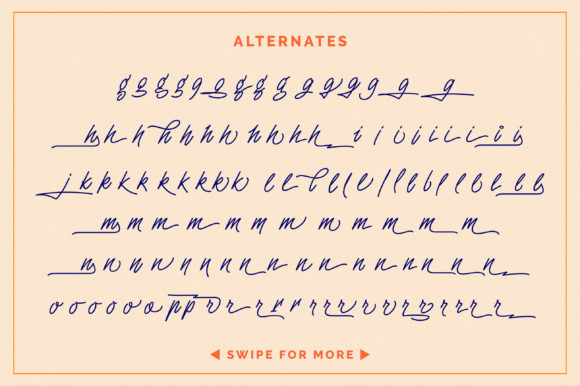 ALTERNATES
g g g g g g g g g g g g g g g g
h h h h h h h h h h h h i i i i i i i i i
j k k k k k k k k k k l l l l l l l l l l l l l l l
m m m m m m m m m m m m
n n n n n n n n n n n n n n n n n
o o o o o o p p r r r r r r r r r r r r r r r
◀ SWIPE FOR MORE ▶